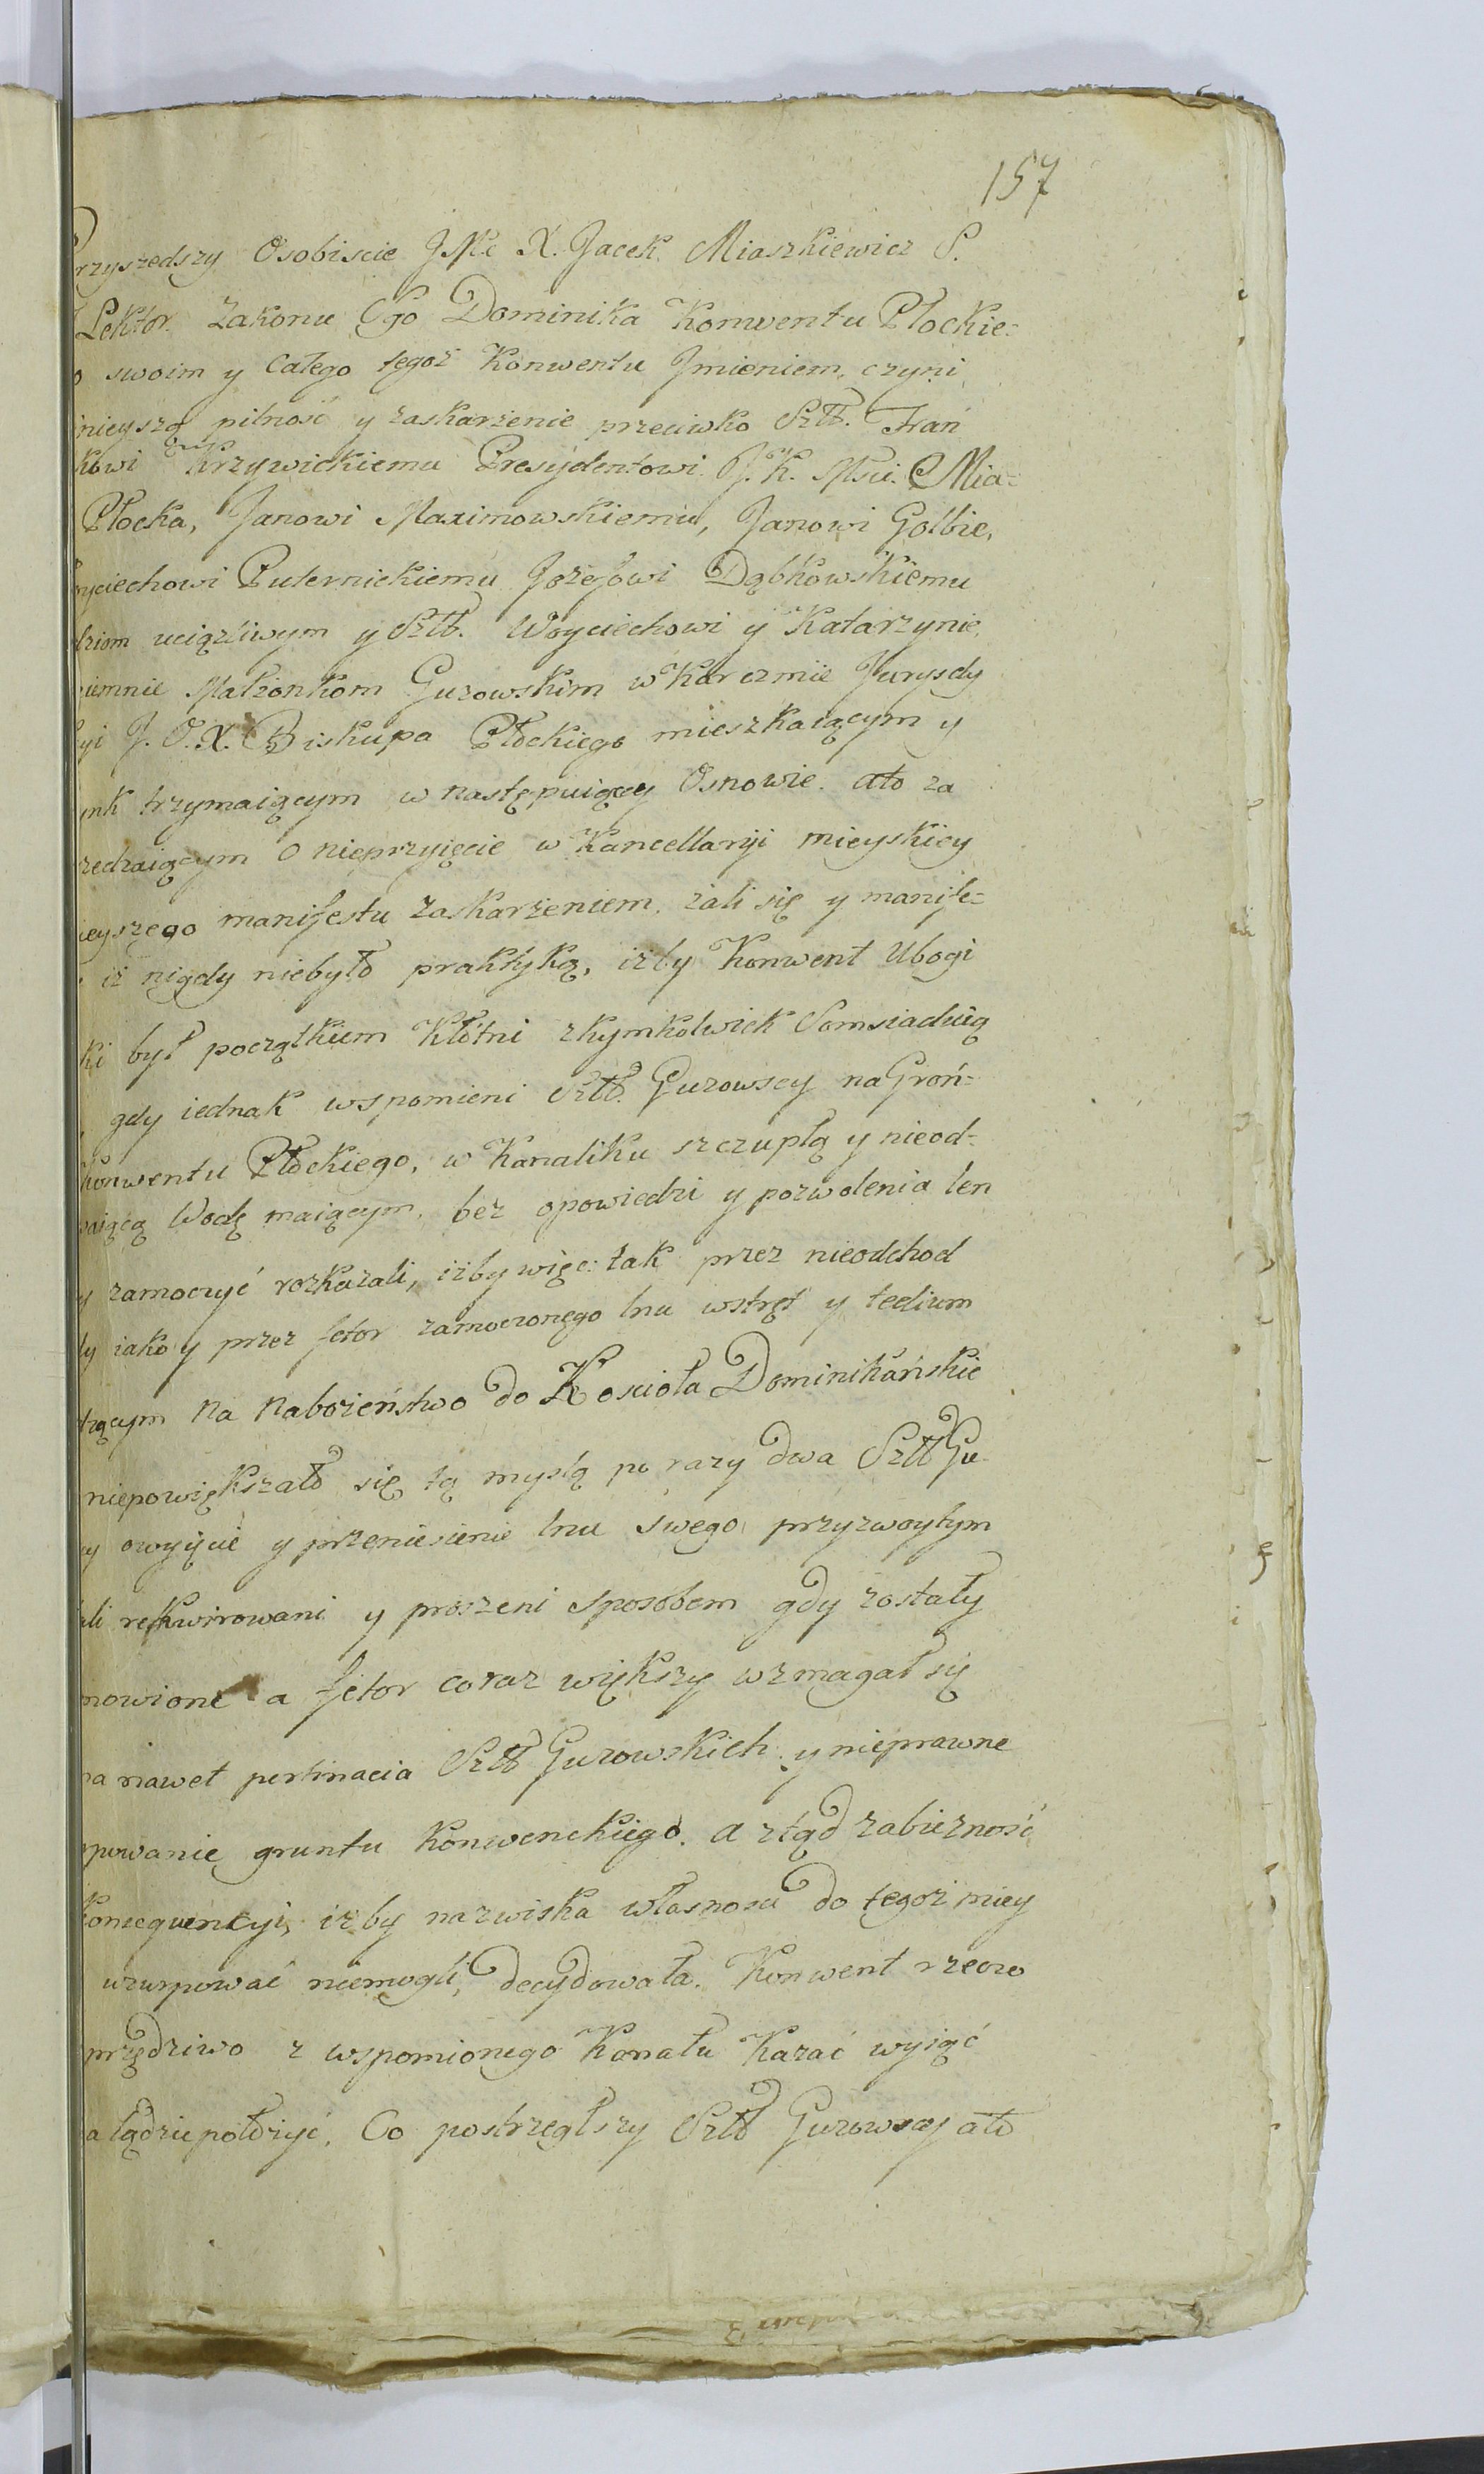 157
Przyszedszy Osobiscie JMć X. Jacek Miaszkiewicz S.
Lektor Zakonu Sgo Dominika Konwentu Płockie=
o swoim y Całego tegoż Konwentu Jmieniem, czyni
nieyszą pilność y zaskarżenie przeciwko Szltt. Fran
kowi Krzywickiemu Prezydentowi J. K. Msci. Mia=
Płocka, Janowi Maximowskiemu, Janowi Golbie,
oyciechowi Puternickiemu Jozefowi Dąbkowskiemu
dziom uciązliwym y Szltt. Woyciechowi y Katarzynie
iemnie Małżonkom Guzowskim w Karczmie Jurysdy
yi J. O. X. Biskupa Płockiego mieszkaiącym y
ynk trzymaiącym w następuiącey Osnowie. ato za
rzedzaiącym O nieprzyięcie w Kancellaryi mieyskiey
ieyszego manifestu Zaskarżeniem. żali się y manife=
iż nigdy niebyło praktyką, iżby Konwent Ubogi
ki był początkiem Kłótni zkymkolwiek Somsiaduią
gdy iednak wspomieni Szltt. Guzowscy na Gron=
Konwentu Płockiego, w Kanaliku szczupłą y nieod=
aiącą Wodę maiącym, bez opowiedzi y pozwolenia len
y zamoczyć rozkazali, iżby więc tak przez nieodchod
dy iako y przez fetor zamoczonego lnu wstręt y tedium
dzącym na nabożeństwo do Koscioła Dominikańskie
niepowiększało się tą myslą po razy dwa Szltt Gu=
cy owyięcie y przeniesienie lnu swego przyzwoytym
ali rekwirowani y proszeni sposobem gdy zostały
mowione a fetor coraz większy wzmagał się
na nawet pertinacia Szltt Guzowskich y nieprawne
powanie gruntu Konwenckiego. a ztąd zabieżność
Konsequencyi, iżby nazwiska własnosci do tegoż miey
uzurpować niemogli, decydowała. Konwent rzeczo
przędziwo z wspomionego Kanału Kazać wyiąć
a lądzie położyć. Co postrzegłszy Szltt Guzowscy ato